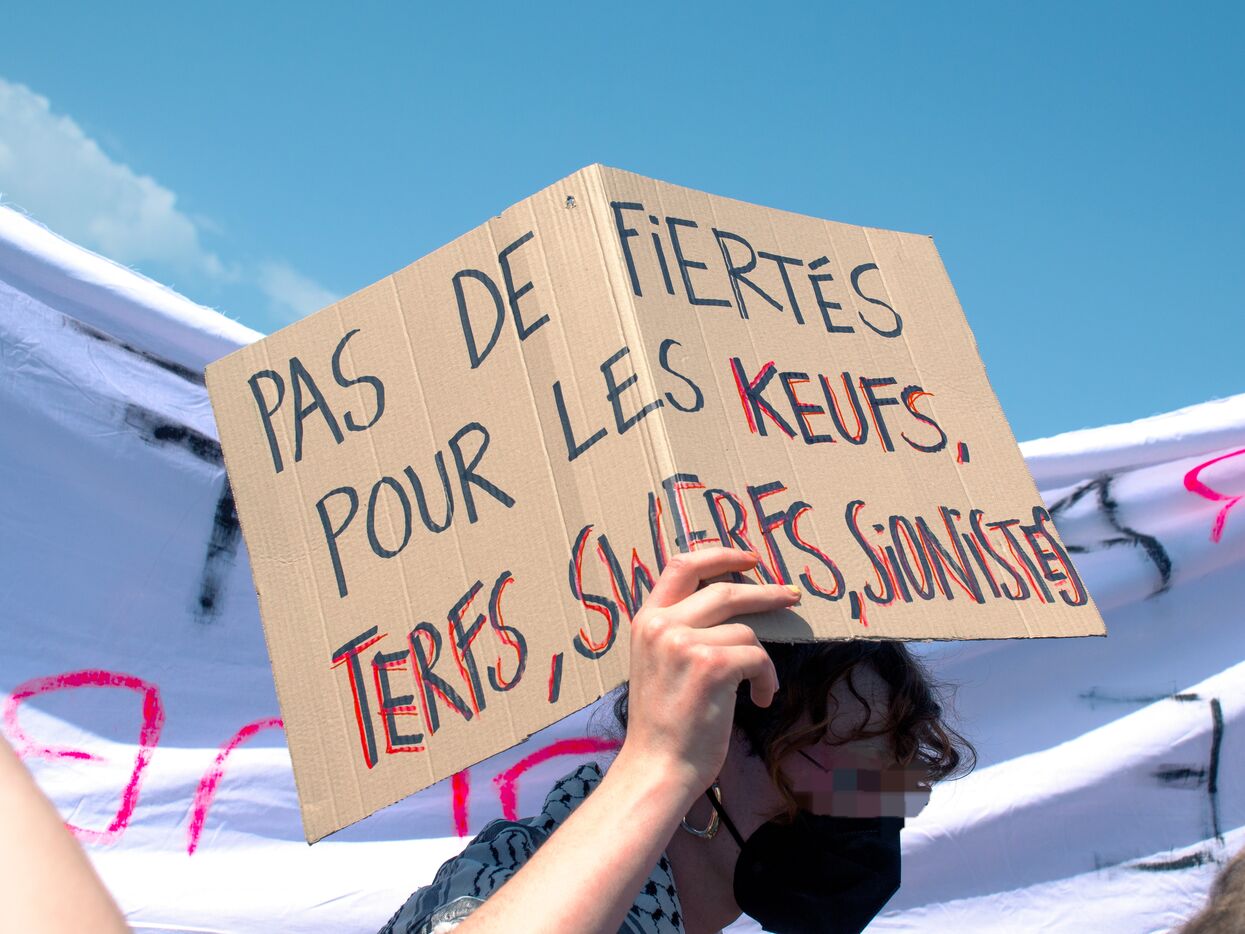 PAS DE FiERTÉS
POUR LES KEUFS,
TERFS, SWERFS, SiONiSTES